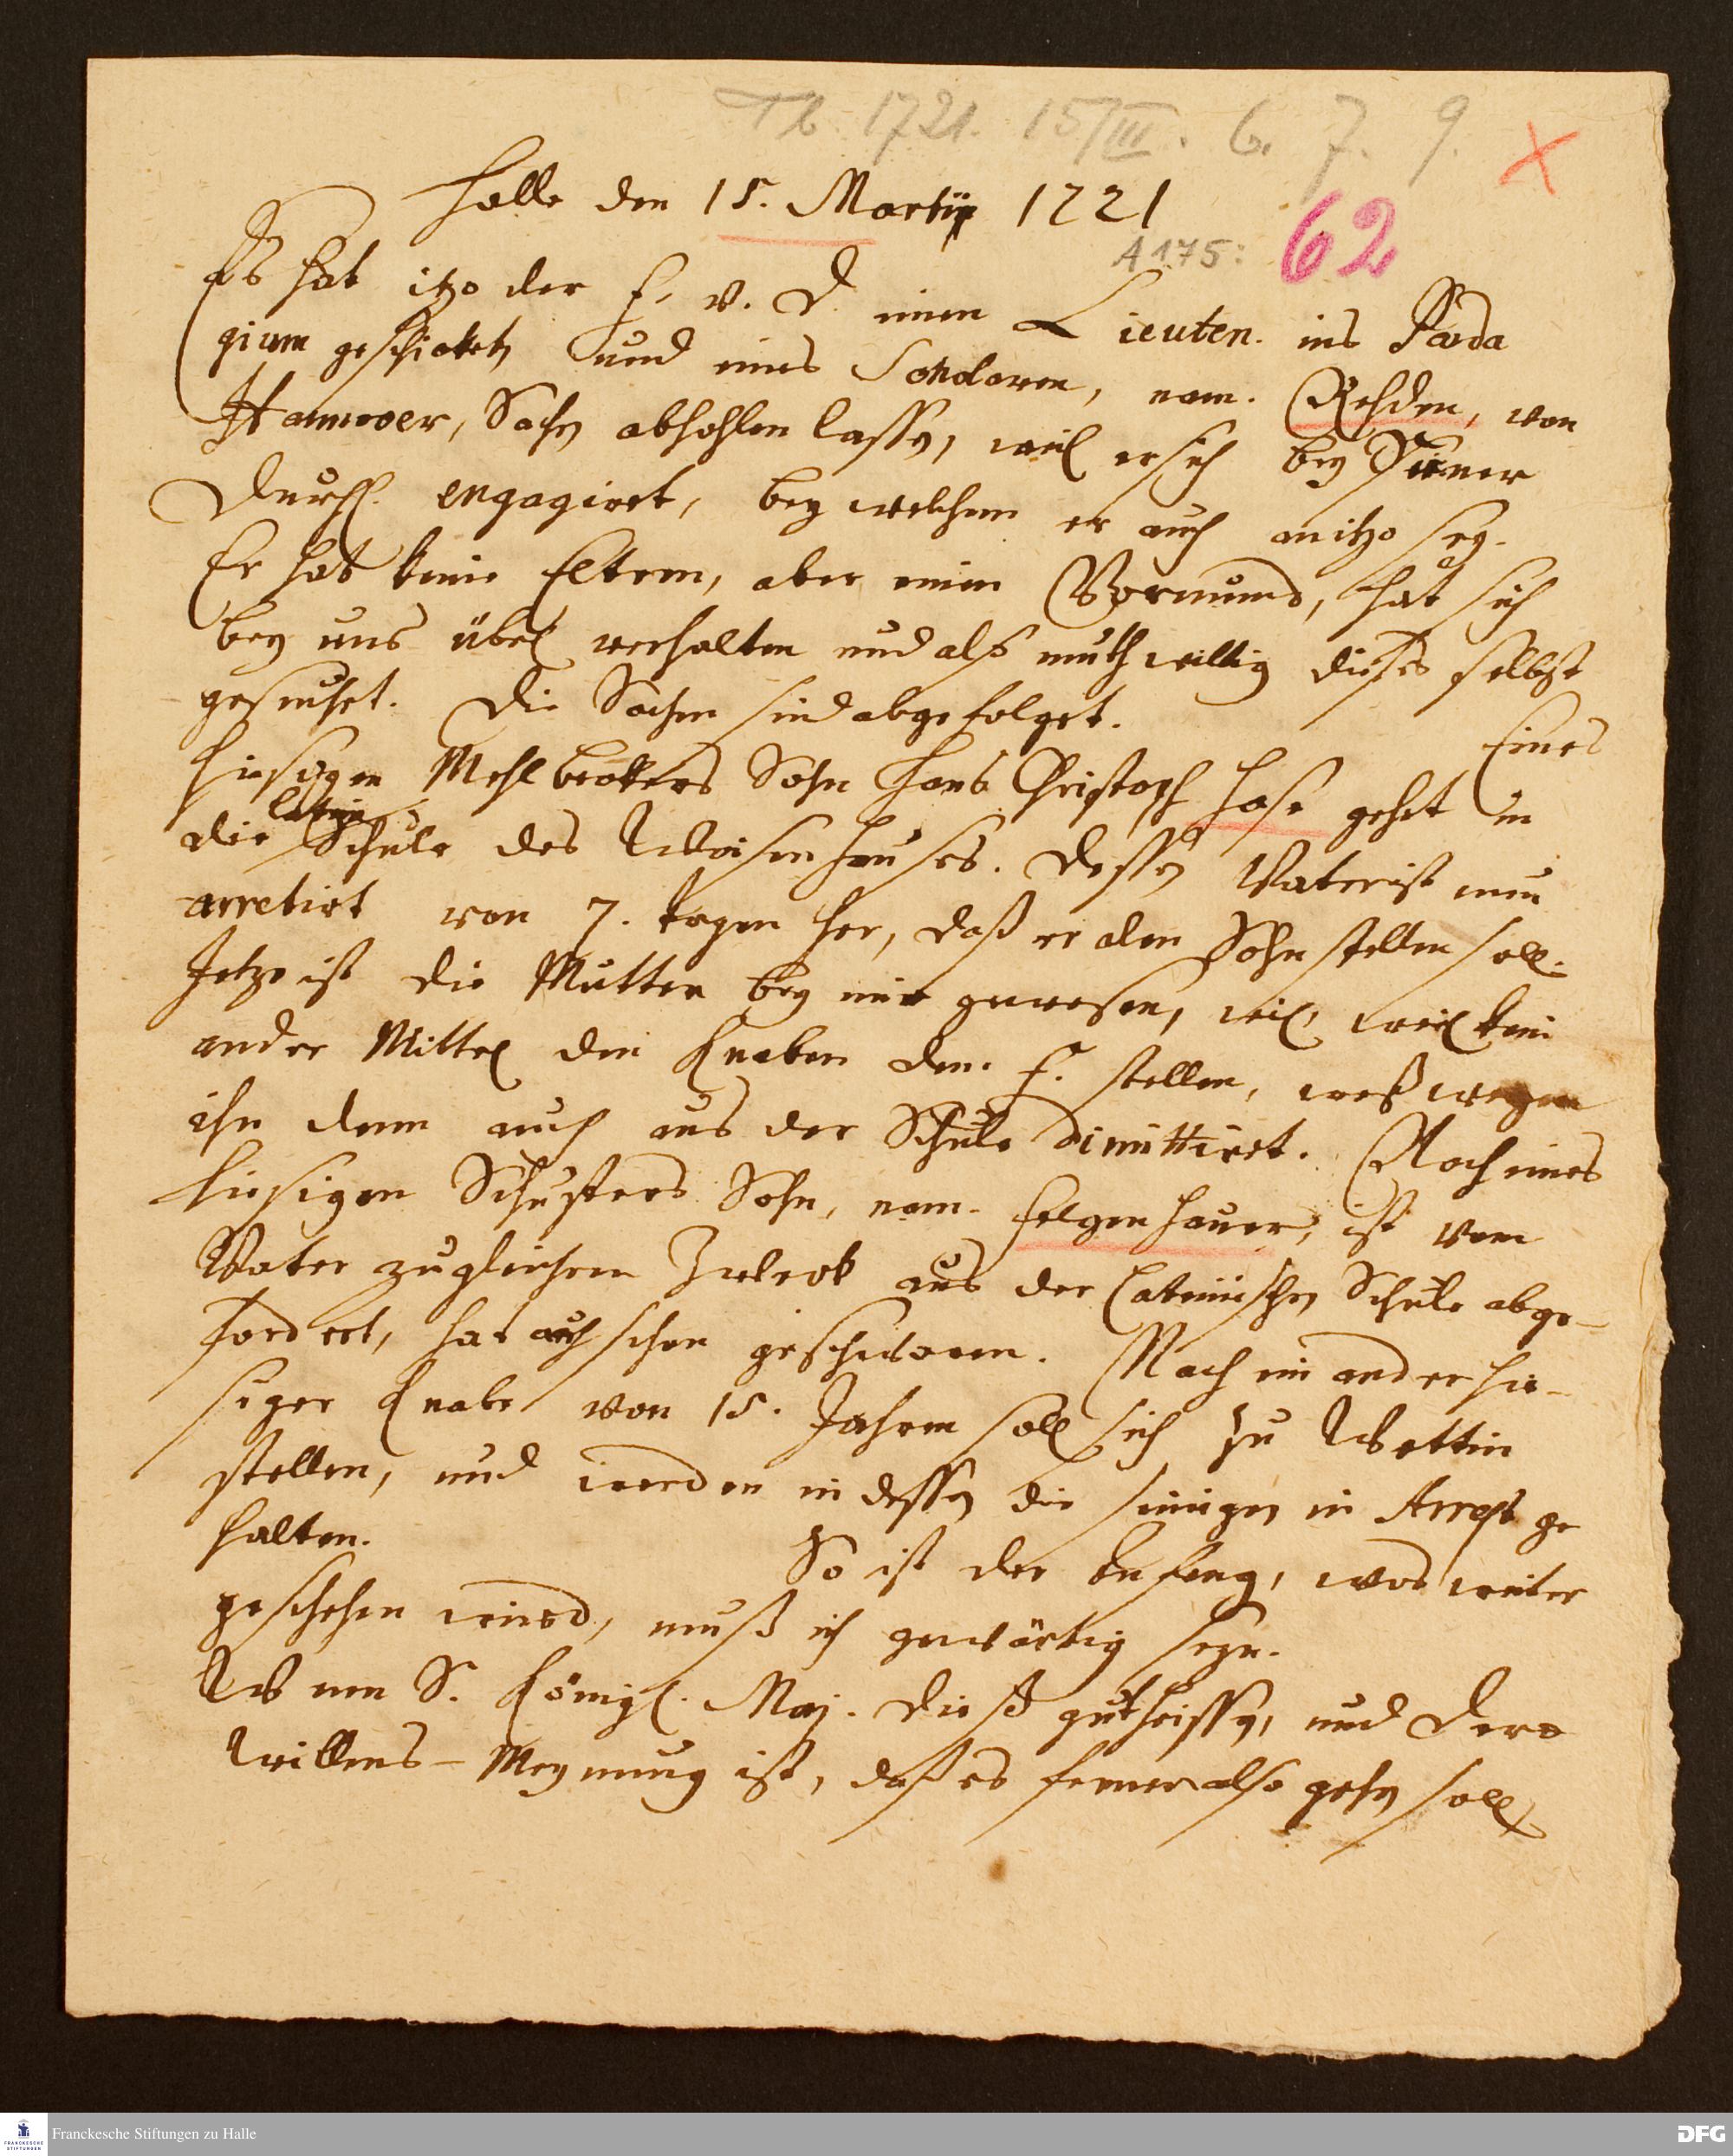 Tb 1721. 15/III. 6. 7. 9.
Halle den 15. Martij 1721
A 175: 62
Es hat itzo der F. v. D. einen Lieuten. ins Pæda
gium geschicket, und eines Scholaren, nam. Rehden, von
Hannover, Sachen abhohlen lassen, weil er sich bey Seiner
Durchl. engagiret, bey welchem er auch anitzo sey.
Er hat keine Eltern, aber einen Vormund, hat sich
bey uns übel verhalten und also muthwillig dieses selbst
gesuchet. Die Sachen sind abgefolget.
Eines
hiesigen Mehlbeckers Sohn Hans Christoph Hase gehet in
die latein. Schule des Waisenhauses. Dessen Vater ist nun
arretirt von 7. tagen her, daß er den Sohn stellen soll.
Jetzo ist die Mutter bey mir gewesen, weil kein
ander Mittel den Knaben dem F. stellen, weßwegen
ihn denn auch aus der Schule dimittiret. Noch eines
hiesigen Schusters Sohn, nam. Felgenhauer, ist vom
Vater zu gleichem Zweck aus der Lateinischen Schule abge-
fordert, hat auch schon geschworen. Noch ein ander hie-
siger Knabe von 15. Jahren soll sich zu Wettin
stellen, und werden indessen die seinigen in Arrest ge
halten.
So ist der Anfang, was weiter
geschehen wird, muß ich gewärtig seyn.
Wenn S. Königl. Maj. dieß gutheissen, und Dero
Willens-Meynung ist, daß es ferner also gehen soll,
Franckesche Stiftungen zu Halle
DFG